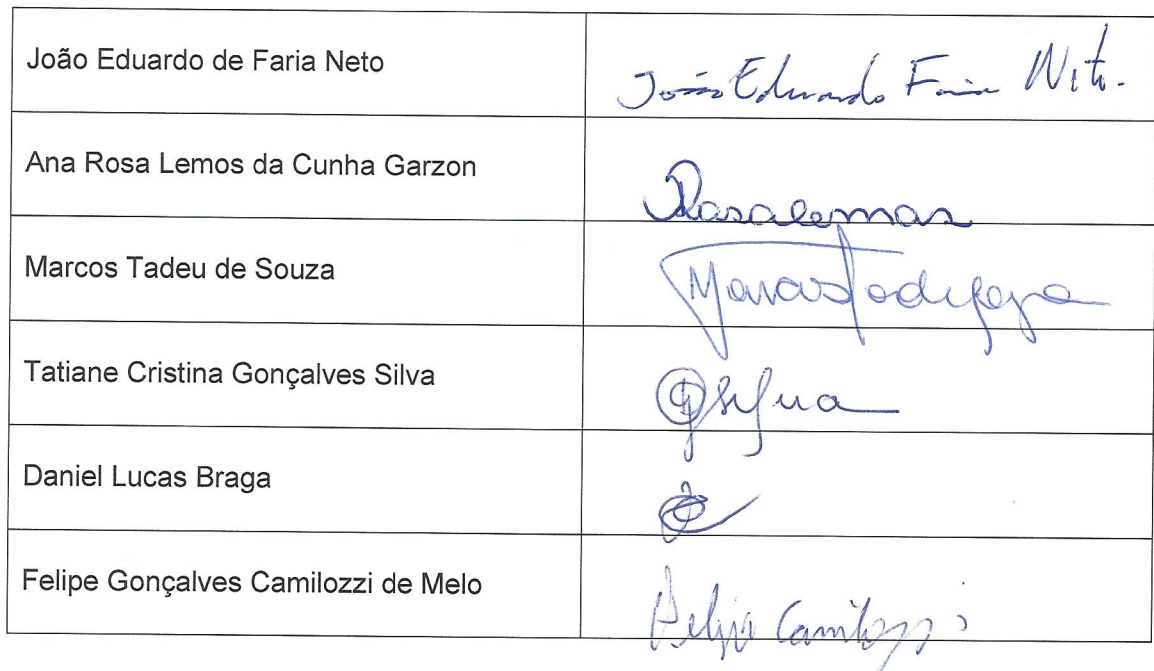 João Eduardo de Faria Neto
João Eduardo Faria Neto.
Ana Rosa Lemos da Cunha Garzon
Marcos Tadeu de Souza
Tatiane Cristina Gonçalves Silva
Daniel Lucas Braga
Felipe Gonçalves Camilozzi de Melo
Felipe Camilozzi